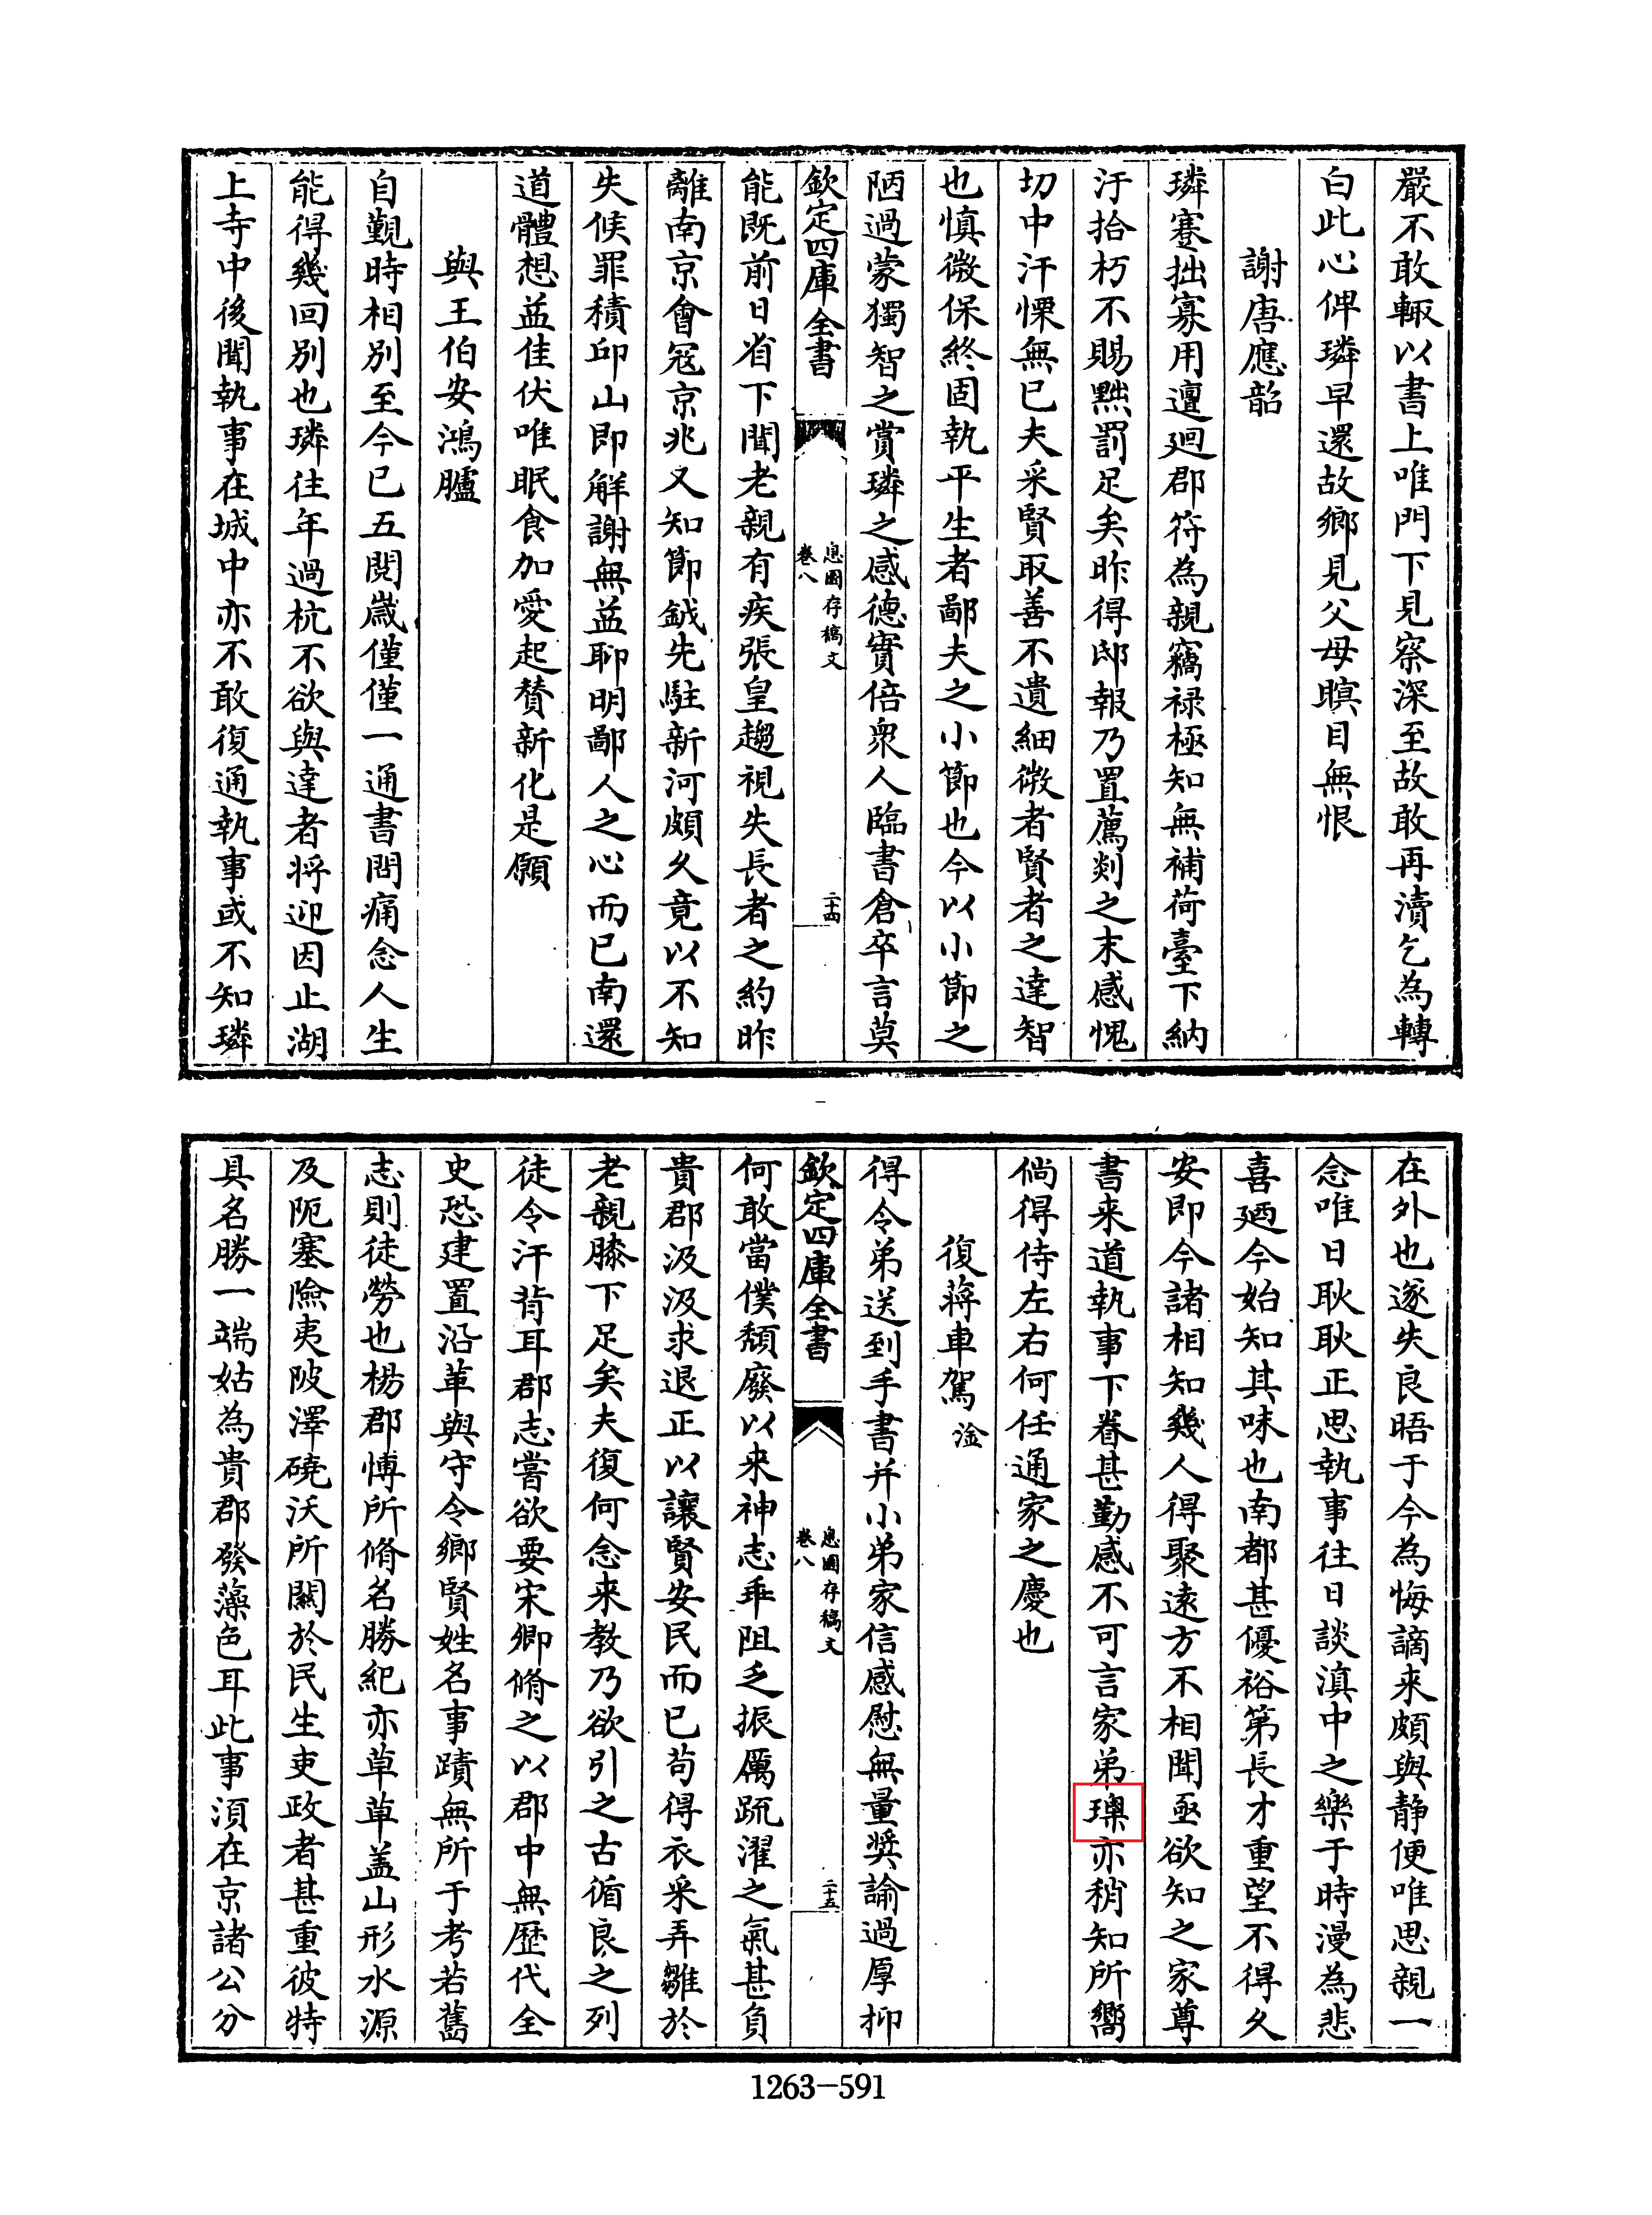 嚴不敢輙以書上唯門下見察深至故敢再瀆乞為轉
白此心俾璘早還故鄉見父母瞑目無恨
謝唐應韶
璘蹇拙寡用邅廻郡符為親竊禄極知無補荷臺下納
汙拾朽不賜黜罰足矣昨得邸報乃置薦剡之末感愧
切中汗慄無已夫采賢取善不遺細微者賢者之達智
也慎微保終固執平生者鄙夫之小節也今以小節之
陋過蒙獨智之賞璘之感德實倍衆人臨書倉卒言莫
欽定四庫全書
息園存稿文
卷八
二十四
能既前日省下聞老親有疾張皇趨視失長者之約昨
離南京會冦京兆又知節鉞先駐新河頗久竟以不知
失候罪積邱山即觧謝無益聊明鄙人之心而已南還
道體想益佳伏唯眠食加愛起賛新化是願
與王伯安鴻臚
自覲時相別至今已五閱嵗僅僅一通書問痛念人生
能得幾回別也璘往年過杭不欲與達者将迎因止湖
上寺中後聞執事在城中亦不敢復通執事或不知璘
在外也遂失良晤于今為悔謫来頗與静便唯思親一
念唯日耿耿正思執事往日談滇中之樂于時漫為悲
喜廼今始知其味也南都甚優裕第長才重望不得久
安即今諸相知幾人得聚逺方不相聞亟欲知之家尊
書来道執事下眷甚勤感不可言家弟瑮亦稍知所嚮
倘得侍左右何任通家之慶也
復蔣車駕淦
得令弟送到手書并小弟家信感慰無量奨諭過厚抑
欽定四庫全書
息園存稿文
卷八
二十五
何敢當僕頽廢以来神志乖阻乏振厲䟽濯之氣甚負
貴郡汲汲求退正以讓賢安民而已苟得衣采弄雛於
老親膝下足矣夫復何念来教乃欲引之古循良之列
徒令汗背耳郡志嘗欲要宋卿脩之以郡中無歴代全
史恐建置沿革與守令鄉賢姓名事蹟無所于考若舊
志則徒勞也楊郡愽所脩名勝紀亦草草盖山形水源
及阨塞險夷陂澤磽沃所關於民生吏政者甚重彼特
具名勝一端姑為貴郡發藻色耳此事湏在京諸公分
1263-591